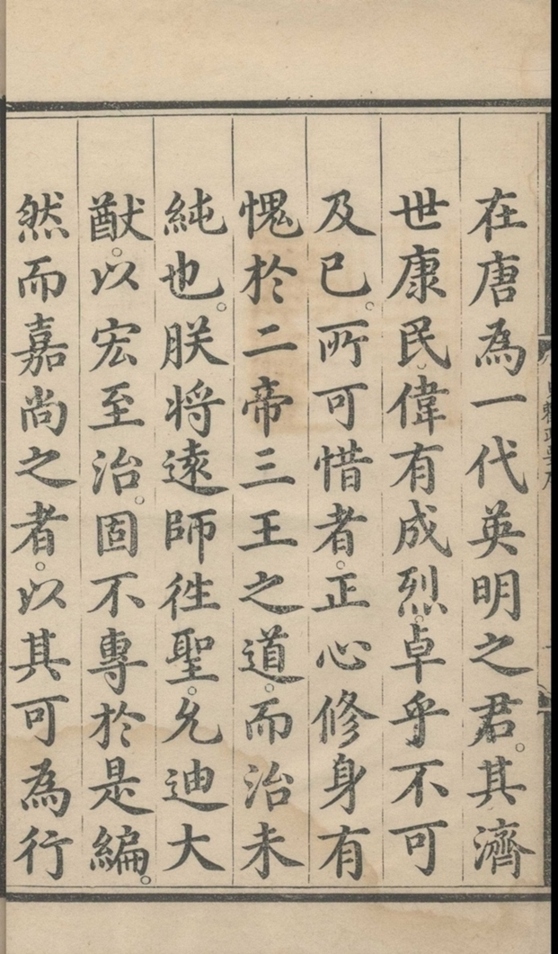 在唐為一代英明之君。其濟
世康民。偉有成烈。卓乎不可
及已。所可惜者。正心修身有
愧於二帝三王之道。而治未
純也。朕将遠師徃聖。允迪大
猷。以宏至治。固不專於是編。
然而嘉尚之者。以其可為行